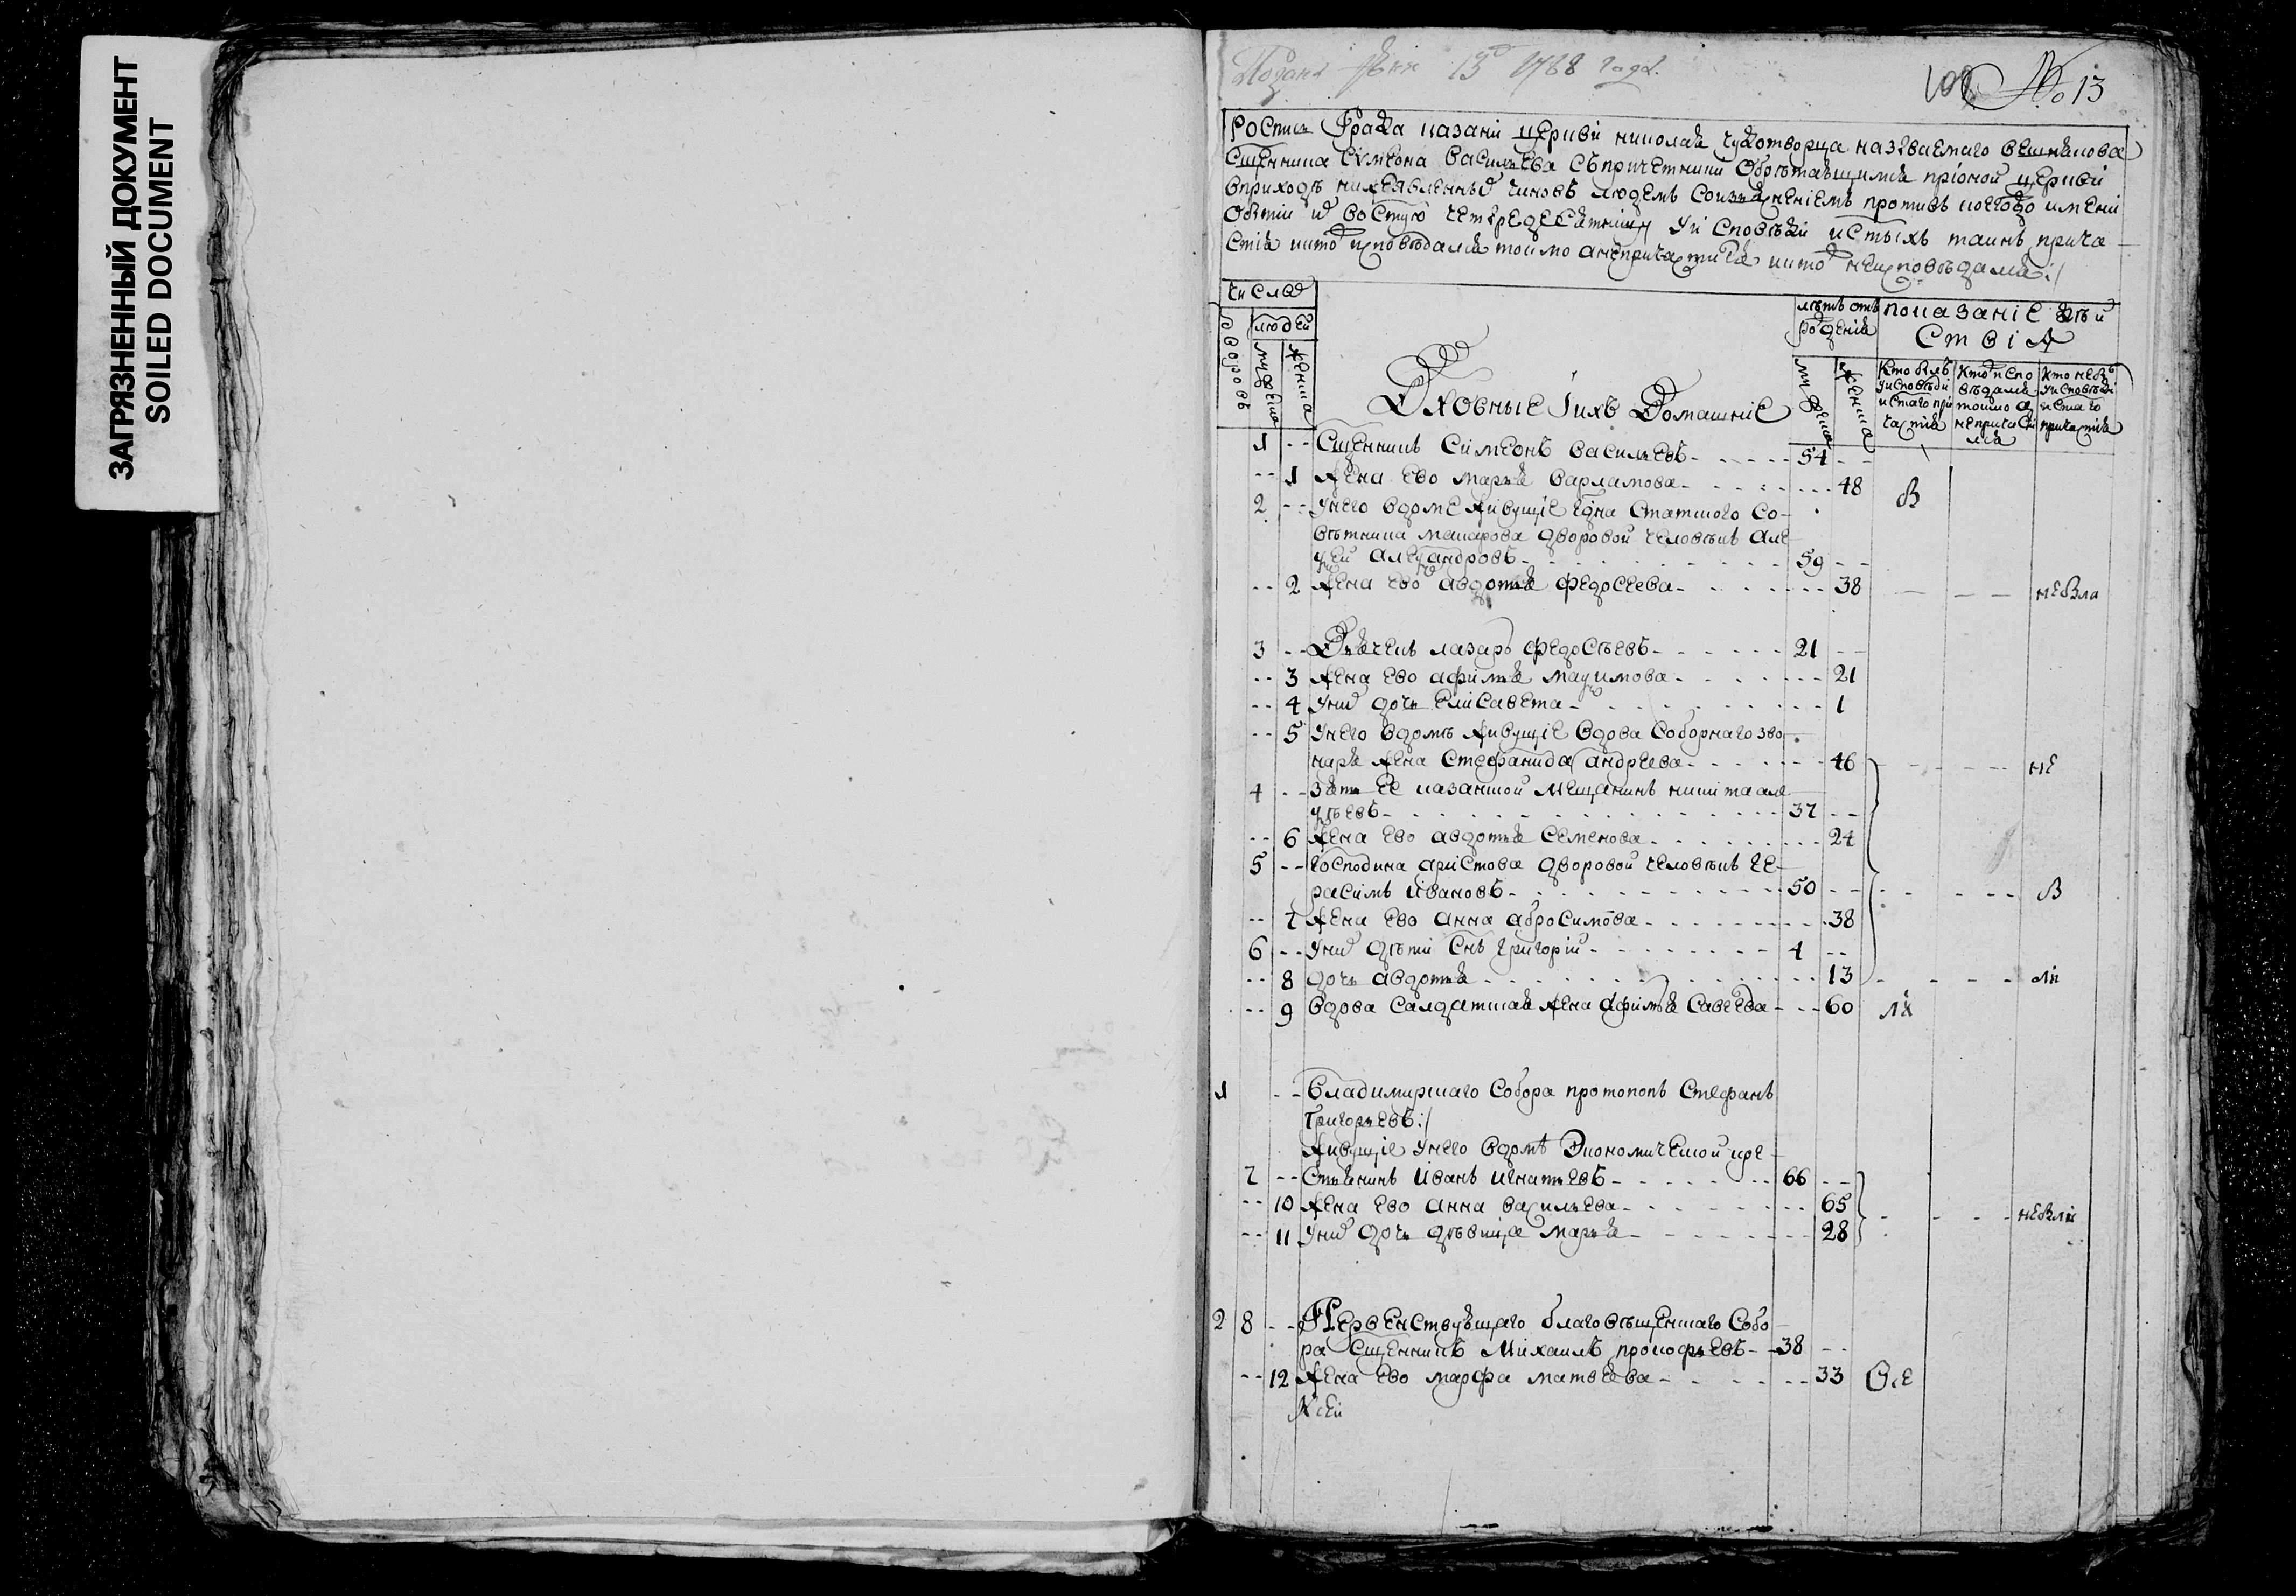 ЗАГРЯЗНЕННЫЙ ДОКУМЕНТ
SOILED DOCUMENT
13 1788 года.
108 № 13
Роспись Града казани церкви николая чудотворца называемаго вешнякова
Сщенника Симеона Васильева съпричетники Обретающимся прионой церкви
вприходе нижеявленныхъ чиновъ людемъ Соизъяснениемъ противъ коегождо имени
Святую четыредесятницу Уисповеди истыхъ таинъ прича-
стия ктоже исповедался токмо анепричастился ктоже неисповедался:/
Число
дворовъ
людей
мужеска
женска
Духовные Иихъ Домашние
летъ отъ рождения
мужеска
женска
показание дей
ствия
Кто былъ Уисповеди истаго причастия
Кто испо ведался токмо а непричасти лся
Кто небылъ Уисповеди истаго причастия
1 -- Сщенникъ Симеонъ Васильевъ - 54 --
-- 1 Жена Ево Марья Варламова - 48 В
2 -- Унего вдоме Живущие Гдна Статского Со-
ветника Макарова дворовой человекъ Але
ксей Александровъ - 59 --
-- 2 Жена Ево Авдотья Федосеева - 38 небыла
3 -- Дьячекъ лазарь Федосеевъ - 21 --
-- 3 Жена Ево Афимья Максимова - 21
-- 4 Унихъ дочь Елисавета - 1
-- 5 Унего вдоме Живущие вдова Соборнаго зво
наря Жена Стефанида андреева - 46 не
4 -- Зять Ее казанской мещанинъ никита але
ксеевъ - 37 --
-- 6 Жена Ево авдотья Семенова - 24
5 -- Господина аристова дворовой человекъ Ге-
расимъ Ивановъ - 50 -- В
-- 7 Жена Ево Анна абросимова - 38
6 -- Унихъ дети Снъ Григорий - 4 --
-- 8 дочь авдотья - 13 ли
-- 9 вдова Салдатская Жена Афимья Савеева - 60
1 -- Владимирскаго Собора протопопъ Стефанъ
Григорьевъ:/
Живущие унего вдоме Экономической кре-
7 -- Стьянинъ Иванъ Игнатьевъ - 66 --
-- 10 Жена Ево Анна Васильева - 65 небыли
-- 11 Унихъ дочь девица Марья - 28
2 8 -- Первенствующаго благовещенскаго Собо-
ра Сщенникъ Михаилъ прокофьевъ - 38 --
-- 12 Жена Ево марфа матвеева - 33